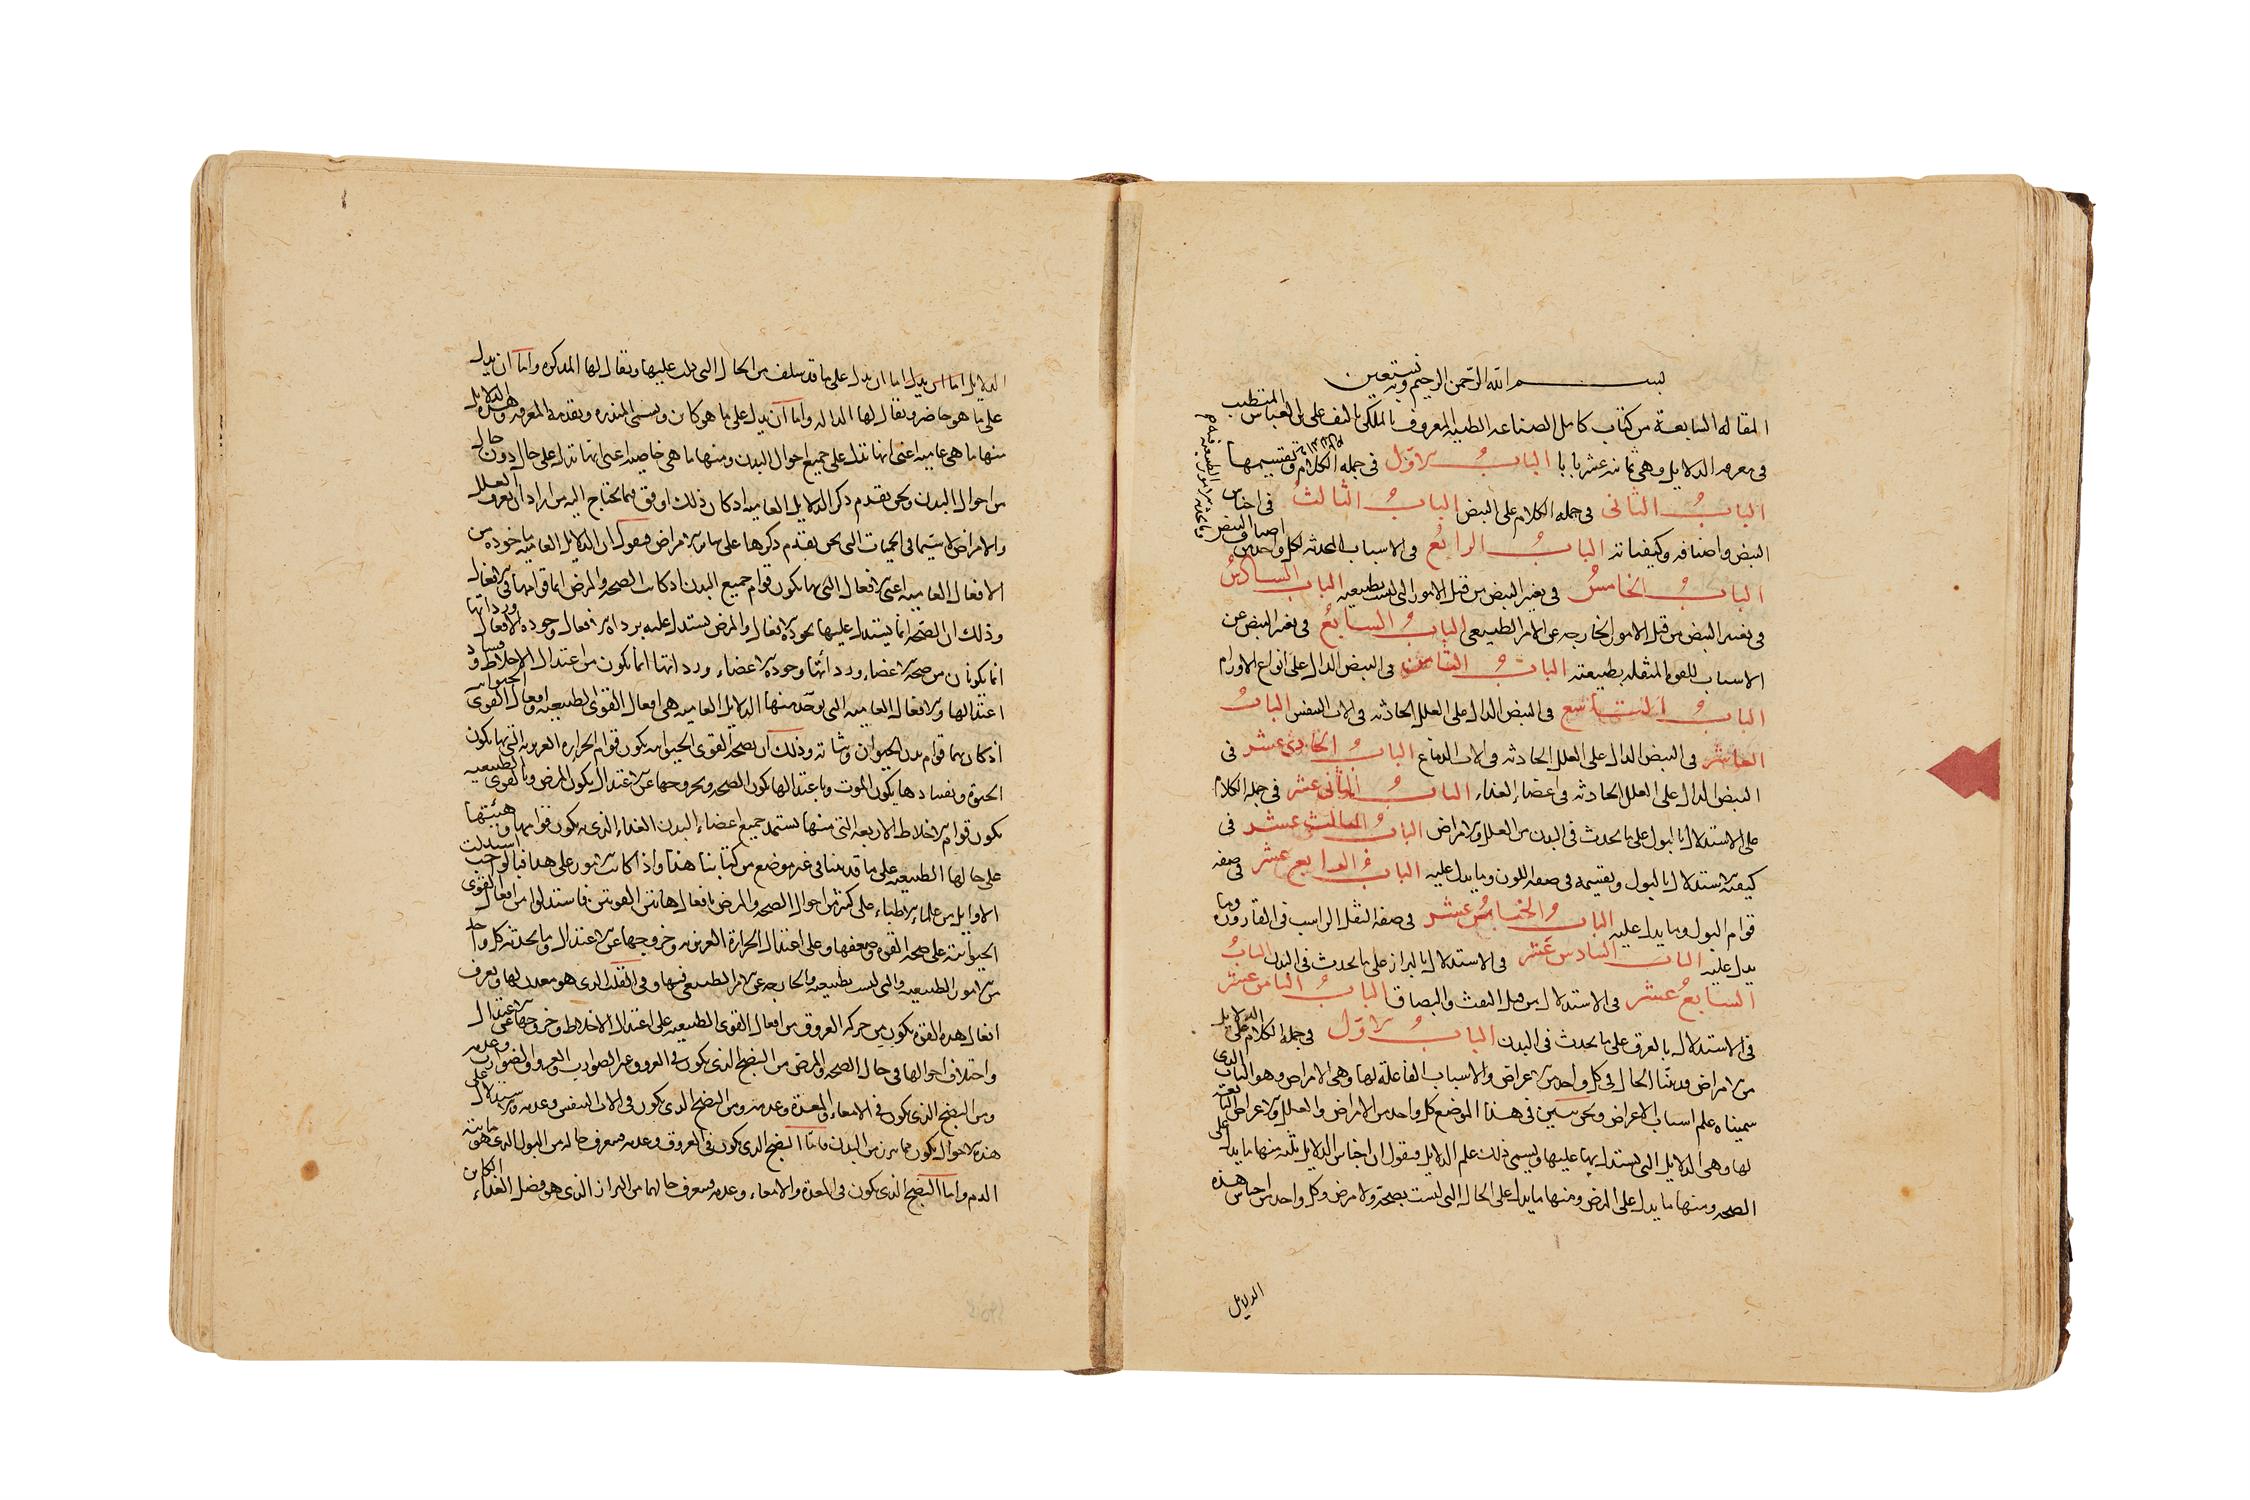 بسم الله الرحمن الرحيم وبه نستعين
المقاله السابعة من كتاب كامل الصناعه الطبيه المعروف بالملكي تاليف على بن العباس المتطبب
فى معرفه الدلايل وهى ثمانيه عشر بابا الباب الاول فى جمله الكلام وتقسيمها
الباب الثانى فى جمله الكلام على النبض الباب الثالث فى اجناس
النبض واصنافه وكيفياته الباب الرابع فى الاسباب المحدثه لكل واحد من اصناف النبض
الباب الخامس فى تغير النبض من قبل الامور التى ليست بطبيعيه الباب السادس
فى تغير النبض من قبل الامور الخارجه عن الامر الطبيعى الباب السابع فى تغير النبض عن
الاسباب للقوه المثقله بطبيعته الباب الثامن فى النبض الدال على انواع الاورام
الباب التاسع فى النبض الدال على العلل الحادثه فى الات التنفس الباب
العاشر فى النبض الدال على العلل الحادثه فى الات الدماغ الباب الحادى عشر فى
النبض الدال على العلل الحادثه فى اعضاء الغداء الباب الثانى عشر فى جمله الكلام
على الاستدلال بالبول على ما يحدث فى البدن من العلل والامراض الباب الثالث عشر فى
كيفيه الاستدلال بالبول وتقسيمه فى صفه اللون وما يدل عليه الباب الرابع عشر فى صفه
قوام البول وما يدل عليه الباب الخامس عشر فى صفه الثفل الراسب فى القاروره وما
يدل عليه الباب السادس عشر فى الاستدلال بالبراز على ما يحدث فى البدن الباب
السابع عشر فى الاستدلال من قبل النفث والبصاق الباب الثامن عشر
فى الاستدلال بالعرق على ما يحدث فى البدن الباب الاول فى جمله الكلام على الدلايل
من الامراض وبينا الحال فى كل واحد من الاعراض والاسباب الفاعلة لها وهى الامراض وهو الباب الذى
سميناه علم اسباب الاعراض ونحن نبين فى هذا الموضع كل واحد من الامراض والعلل والاعراض
لها وهى الدلايل التى يستدل بها عليها ويسمى ذلك علم الدلايل فنقول ان اجناس الدلايل ثلثه منها ما يدل على
الصحه ومنها ما يدل على المرض ومنها ما يدل على الحال التى ليست بصحة ولا مرض وكل واحد من اجناس هذه
الدلايل
الدلايل اما ان يدل على ما قد سلف من الحال التى دلت عليها ويقال لها المذكره واما ان يدل
على ما هو حاضر ويقال لها الداله واما ان يدل على ما هو كاين ويسمى المنذره وتقدمة المعرفه وهذه الدلايل
منها ما هى عاميه اعنى انها تدل على جميع احوال البدن ومنها ما هى خاصيه اعنى انها تدل على حال دون حال
من احوال البدن ونحن نقدم ذكر الدلايل العاميه اذ كان ذلك اوفق فيما يحتاج اليه من اراد ان يعرف العلل
والامراض لا سيما فى الحميات التى نحن نقدم ذكرها على ساير الامراض فنقول ان الدلايل العاميه ماخوذه من
الافعال العاميه اعنى الافعال التى بها يكون قوام جميع البدن اذ كانت الصحه والمرض انما قوامهما فى الافعال
وذلك ان الصحه انما يستدل عليها بجوده الافعال والمرض يستدل عليه برداه الافعال وجوده الافعال ورداتها
انما يكونان من صحه الاعضاء ورداتها وجوده الاعضاء ورداتها انما يكون من اعتدال الاخلاط وفساد
اعتدالها والافعال العاميه التى توخذ منها الدلايل العاميه هى افعال القوى الطبيعيه وافعال القوى الحيوانيه
اذ كان بهما قوام بدن الحيوان وثباته وذلك ان بصحة القوى الحيوانيه يكون قوام الحراره الغريزيه التى بها يكون
الحيوة وبفسادها يكون الموت وباعتدالها يكون الصحه وبخروجها عن الاعتدال يكون المرض وبالقوى الطبيعيه
يكون قوام الاخلاط الاربعه التى منها يستمد جميع اعضاء البدن الغداء الذى به يكون قوامها وهيئتها
على حالها الطبيعيه على ما قد بينا فى غير موضع من كتابنا هذا واذا كانت الامور على هذا فبالواجب استدلت
الاوايل من علماء الاطباء على كثير من احوال الصحه والمرض بافعال هاتين القوتين فاستدلوا من افعال القوى
الحيوانيه على صحه القوه وضعفها وعلى اعتدال الحرارة الغريزيه وخروجها عن الاعتدال وما يحدثه كل واحد
من الامور الطبيعيه والتى ليست بطبيعيه والخارجه عن الامر الطبيعى فيها وفى القلب الذى هو معدن لها وتعرف
افعال هذه القوه يكون من حركه العروق من افعال القوى الطبيعيه على اعتدال الاخلاط وخروجها عن الاعتدال
واختلاف احوالها فى حال الصحه والمرض من النضج الذى يكون فى العروق غير الضوارب والعروق الضوارب وعدمه
ومن النضج الذى يكون فى الامعاء والمعدة وعدمه ومن النضج الذى يكون فى الات التنفس وعدمه والاستدلال على
هذه الاحوال يكون مما يبرز من البدن فاما النضج الذى يكون فى العروق وعدمه فيعرف حاله من البول الذى هو مائيه
الدم واما النضج الذى يكون فى المعدة والامعاء وعدمه فيعرف حالهما من البراز الذى هو فضل الغداء الكاين